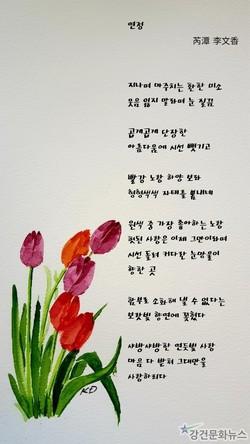 연정
芮潭 李文香
지나며 마주치는 환한 미소
웃음 잃지 말라며 눈 질끔
곱게곱게 단장한
아름다움에 시선 뺏기고
빨강 노랑 하양 보라
형형색색 자태를 뽐내네
원색 중 가장 좋아하는 노랑
헛된 사랑은 이제 그만이라며
시선 돌려 커다란 눈망울이
향한 곳
함부로 소화해 낼 수 없다는
보랏빛 향연에 꽂혔다
샤방샤방한 연둣빛 사랑
마음 다 받쳐 그대만을
사랑하리라
KD
강건문화뉴스